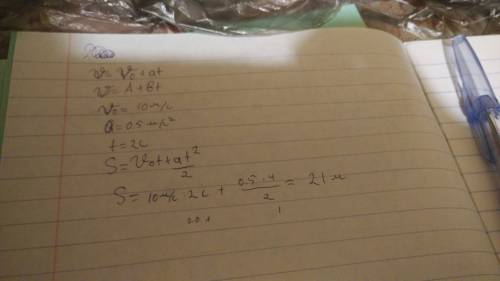 v = v₀ + at
v = A + Bt
v₀ = 10 м/с
a = 0.5 м/с²
t = 2с
S = v₀t + at²/2
S = 10 м/с · 2с + 0.5 · 4/2 = 21 м